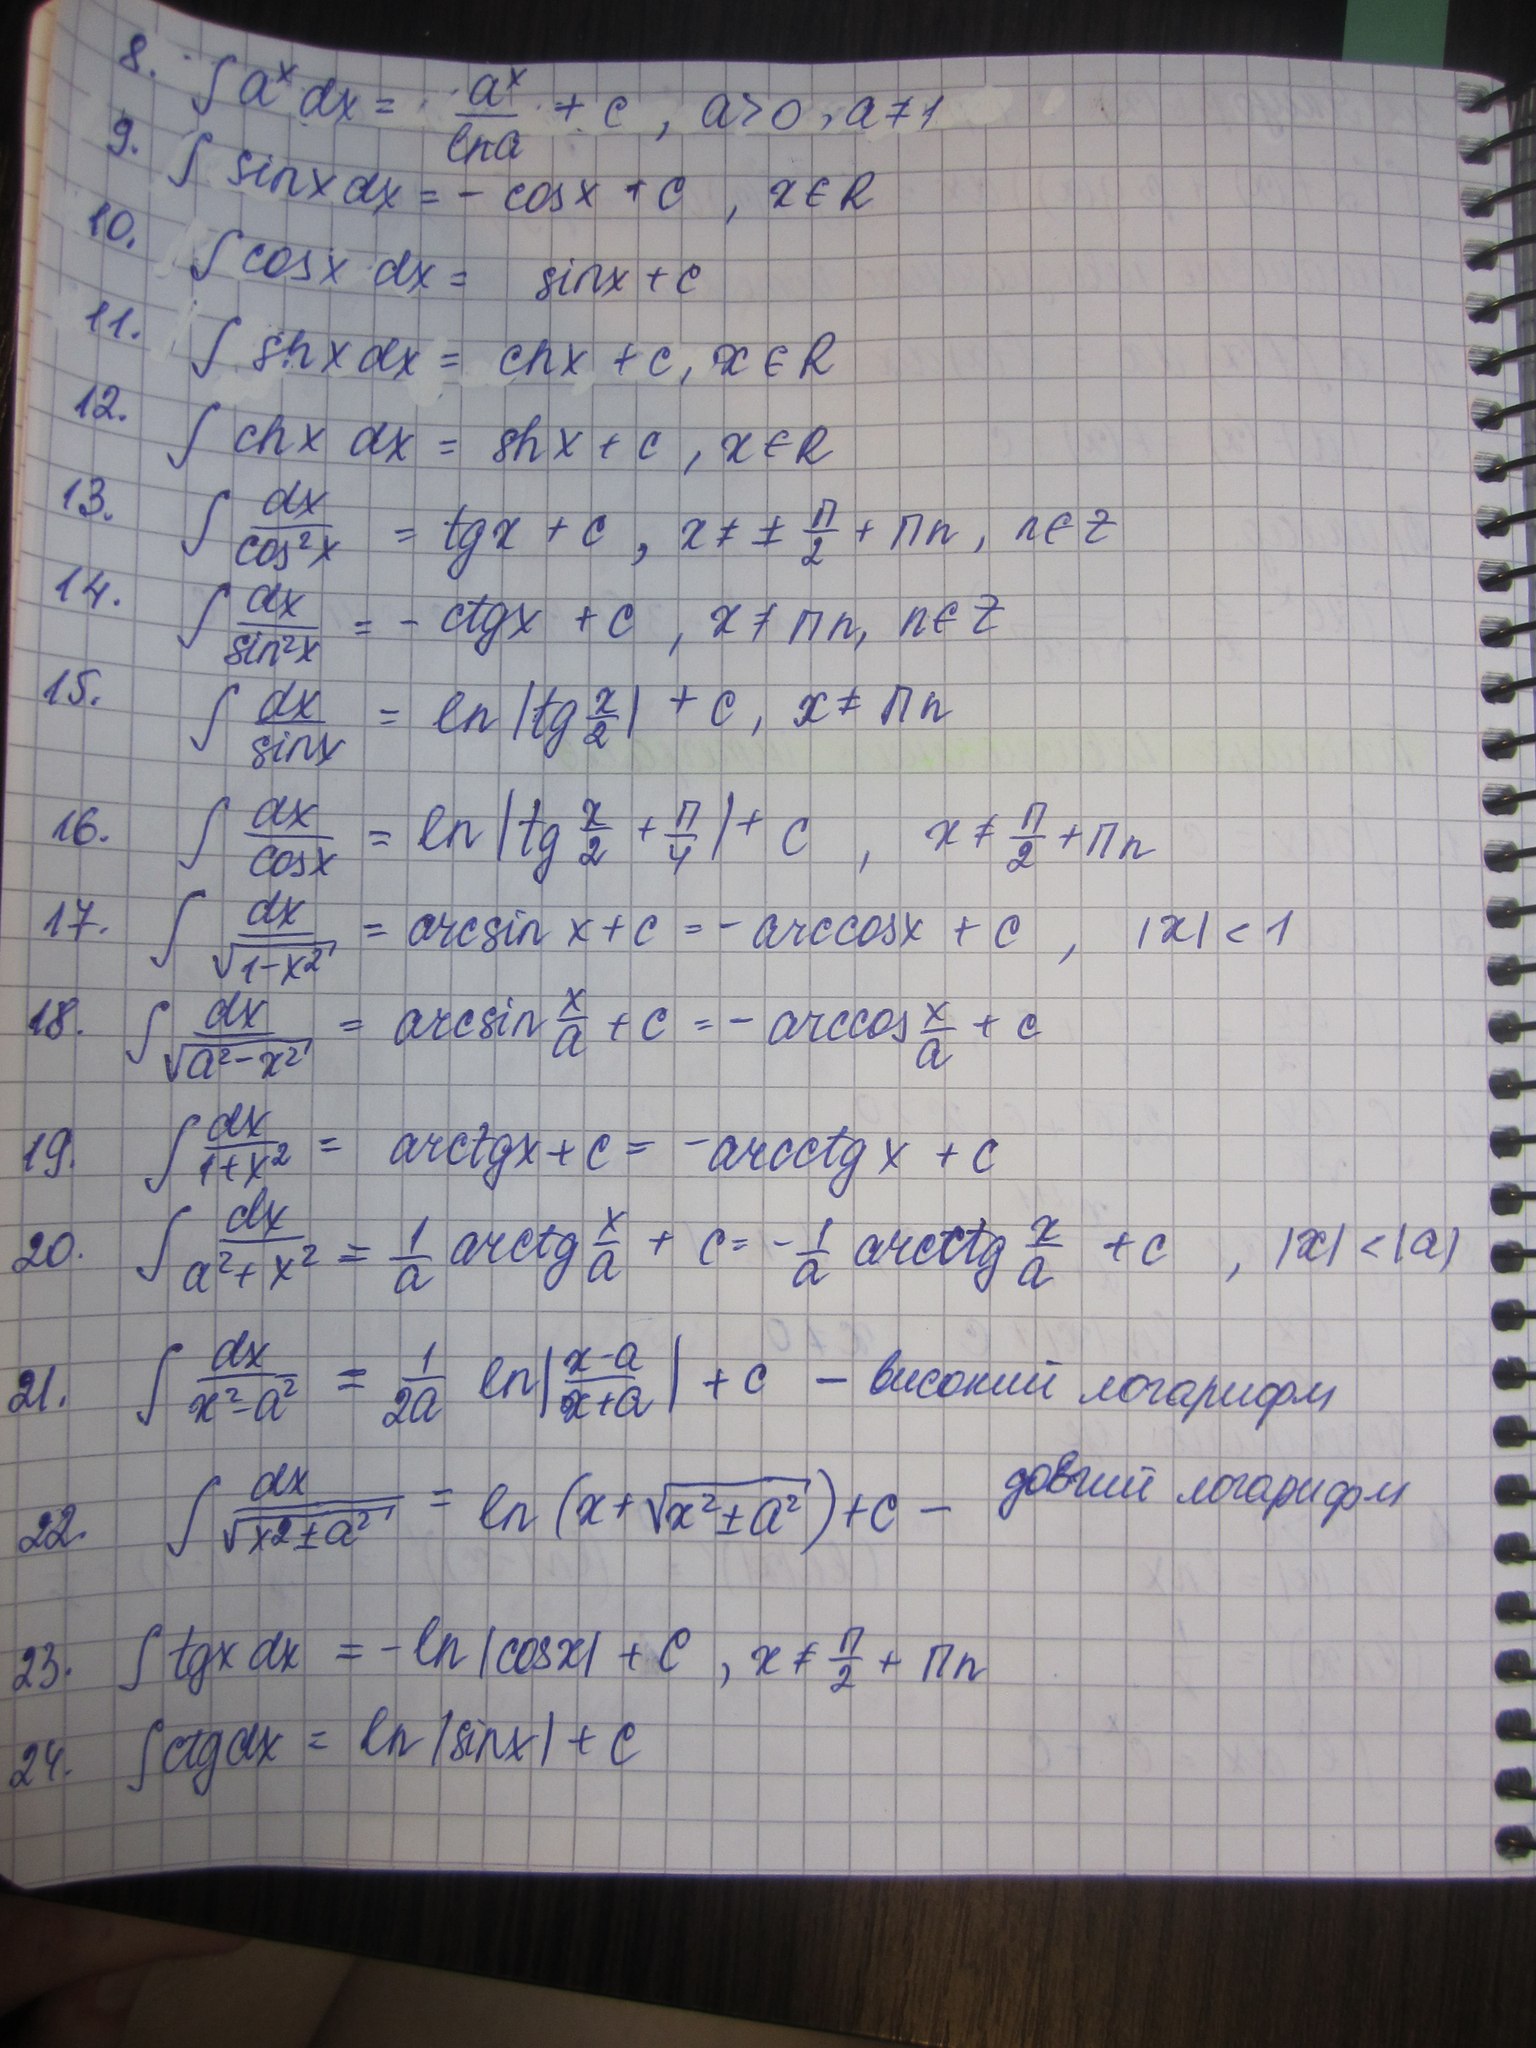 8. ∫ aˣ dx = aˣ/ln a + c, a > 0, a ≠ 1
9. ∫ sinx dx = - cosx + c, x ∈ R
10. ∫ cosx dx = sinx + c
11. ∫ shx dx = chx + c, x ∈ R
12. ∫ chx dx = shx + c, x ∈ R
13. ∫ dx/cos²x = tgx + c, x ≠ ± π/2 + πn, n ∈ Z
14. ∫ dx/sin²x = - ctgx + c, x ≠ πn, n ∈ Z
15. ∫ dx/sinx = ln |tg x/2| + c, x ≠ πn
16. ∫ dx/cosx = ln |tg x/2 + π/4| + c, x ≠ π/2 + πn
17. ∫ dx/√(1-x²) = arcsin x + c = - arccosx + c, |x| < 1
18. ∫ dx/√(a²-x²) = arcsin x/a + c = - arccos x/a + c
19. ∫ dx/(1+x²) = arctgx + c = -arcctg x + c
20. ∫ dx/(a²+x²) = 1/a arctg x/a + c = - 1/a arcctg x/a + c, |x| < |a|
21. ∫ dx/(x²-a²) = 1/2a ln |(x-a)/(x+a)| + c - високий логарифм
22. ∫ dx/√(x²±a²) = ln (x + √(x²±a²)) + c - довгий логарифм
23. ∫ tgx dx = - ln |cosx| + c, x ≠ π/2 + πn
24. ∫ ctg dx = ln |sinx| + c